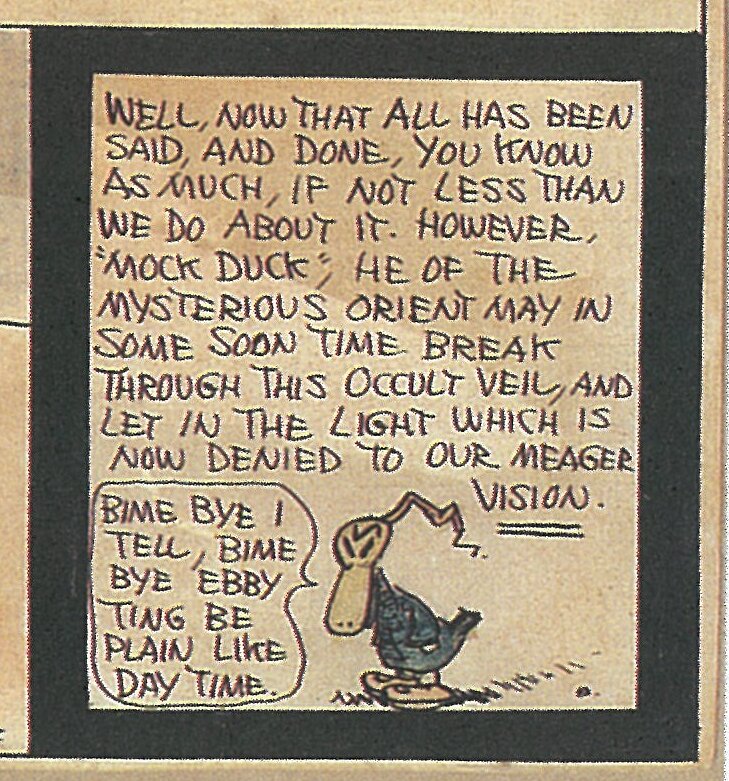 WELL, NOW THAT ALL HAS BEEN
SAID, AND DONE, YOU KNOW
AS MUCH, IF NOT LESS THAN
WE DO ABOUT IT. HOWEVER,
"MOCK DUCK", HE OF THE
MYSTERIOUS ORIENT MAY IN
SOME SOON TIME BREAK
THROUGH THIS OCCULT VEIL, AND
LET IN THE LIGHT WHICH IS
NOW DENIED TO OUR MEAGER
VISION.
BIME BYE I
TELL, BIME
BYE EBBY
TING BE
PLAIN LIKE
DAY TIME.